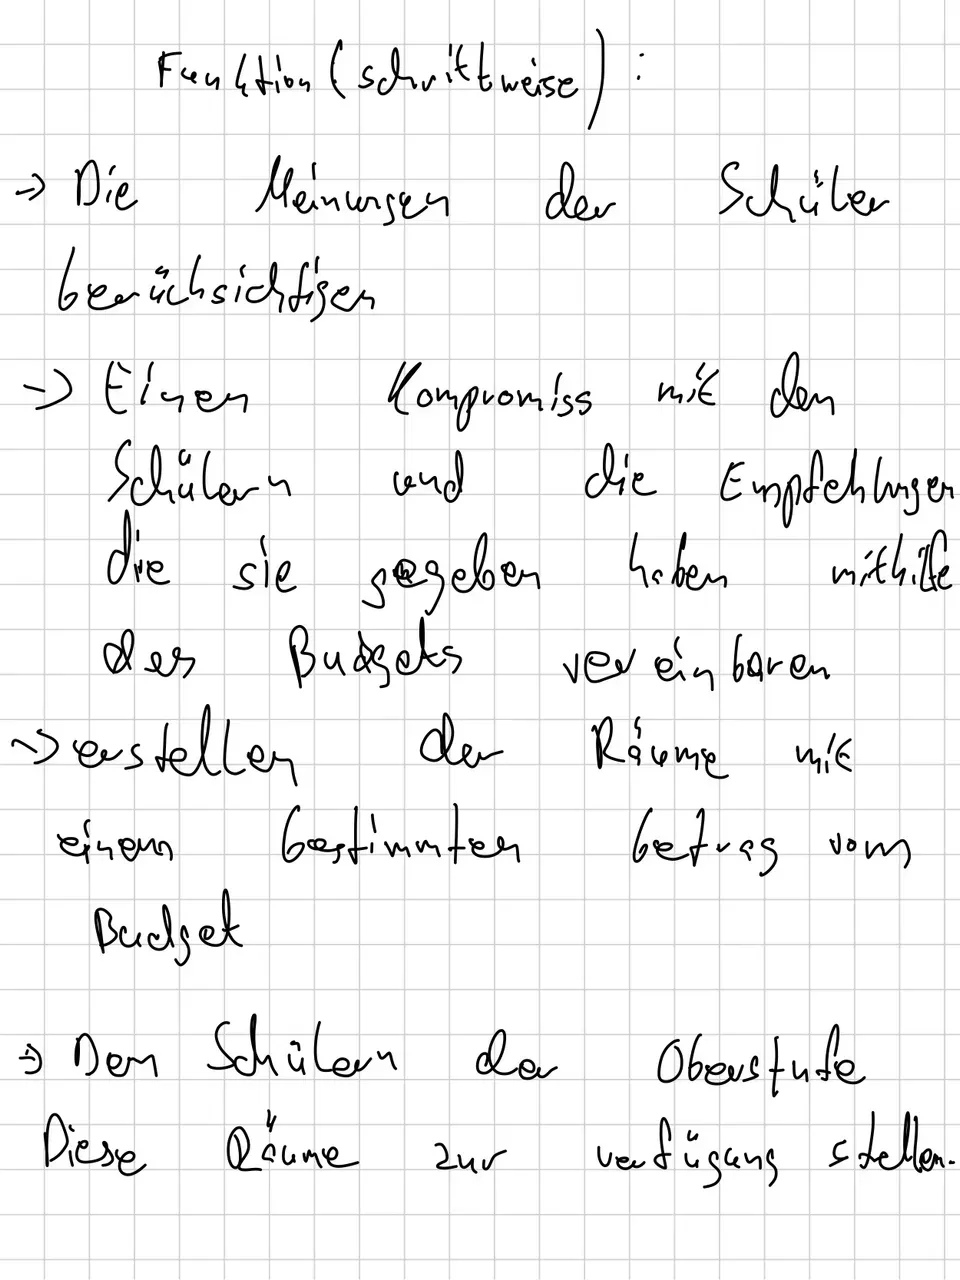 Funktion (schrittweise):
→ Die Meinungen der Schüler
berücksichtigen
→ Einen Kompromiss mit den
Schülern und die Empfehlungen
die sie gegeben haben mithilfe
des Budgets vereinbaren
→ erstellen der Räume mit
einem bestimmten betrag vom
Budget
→ Den Schülern der Oberstufe
Diese Räume zur verfügung stellen.